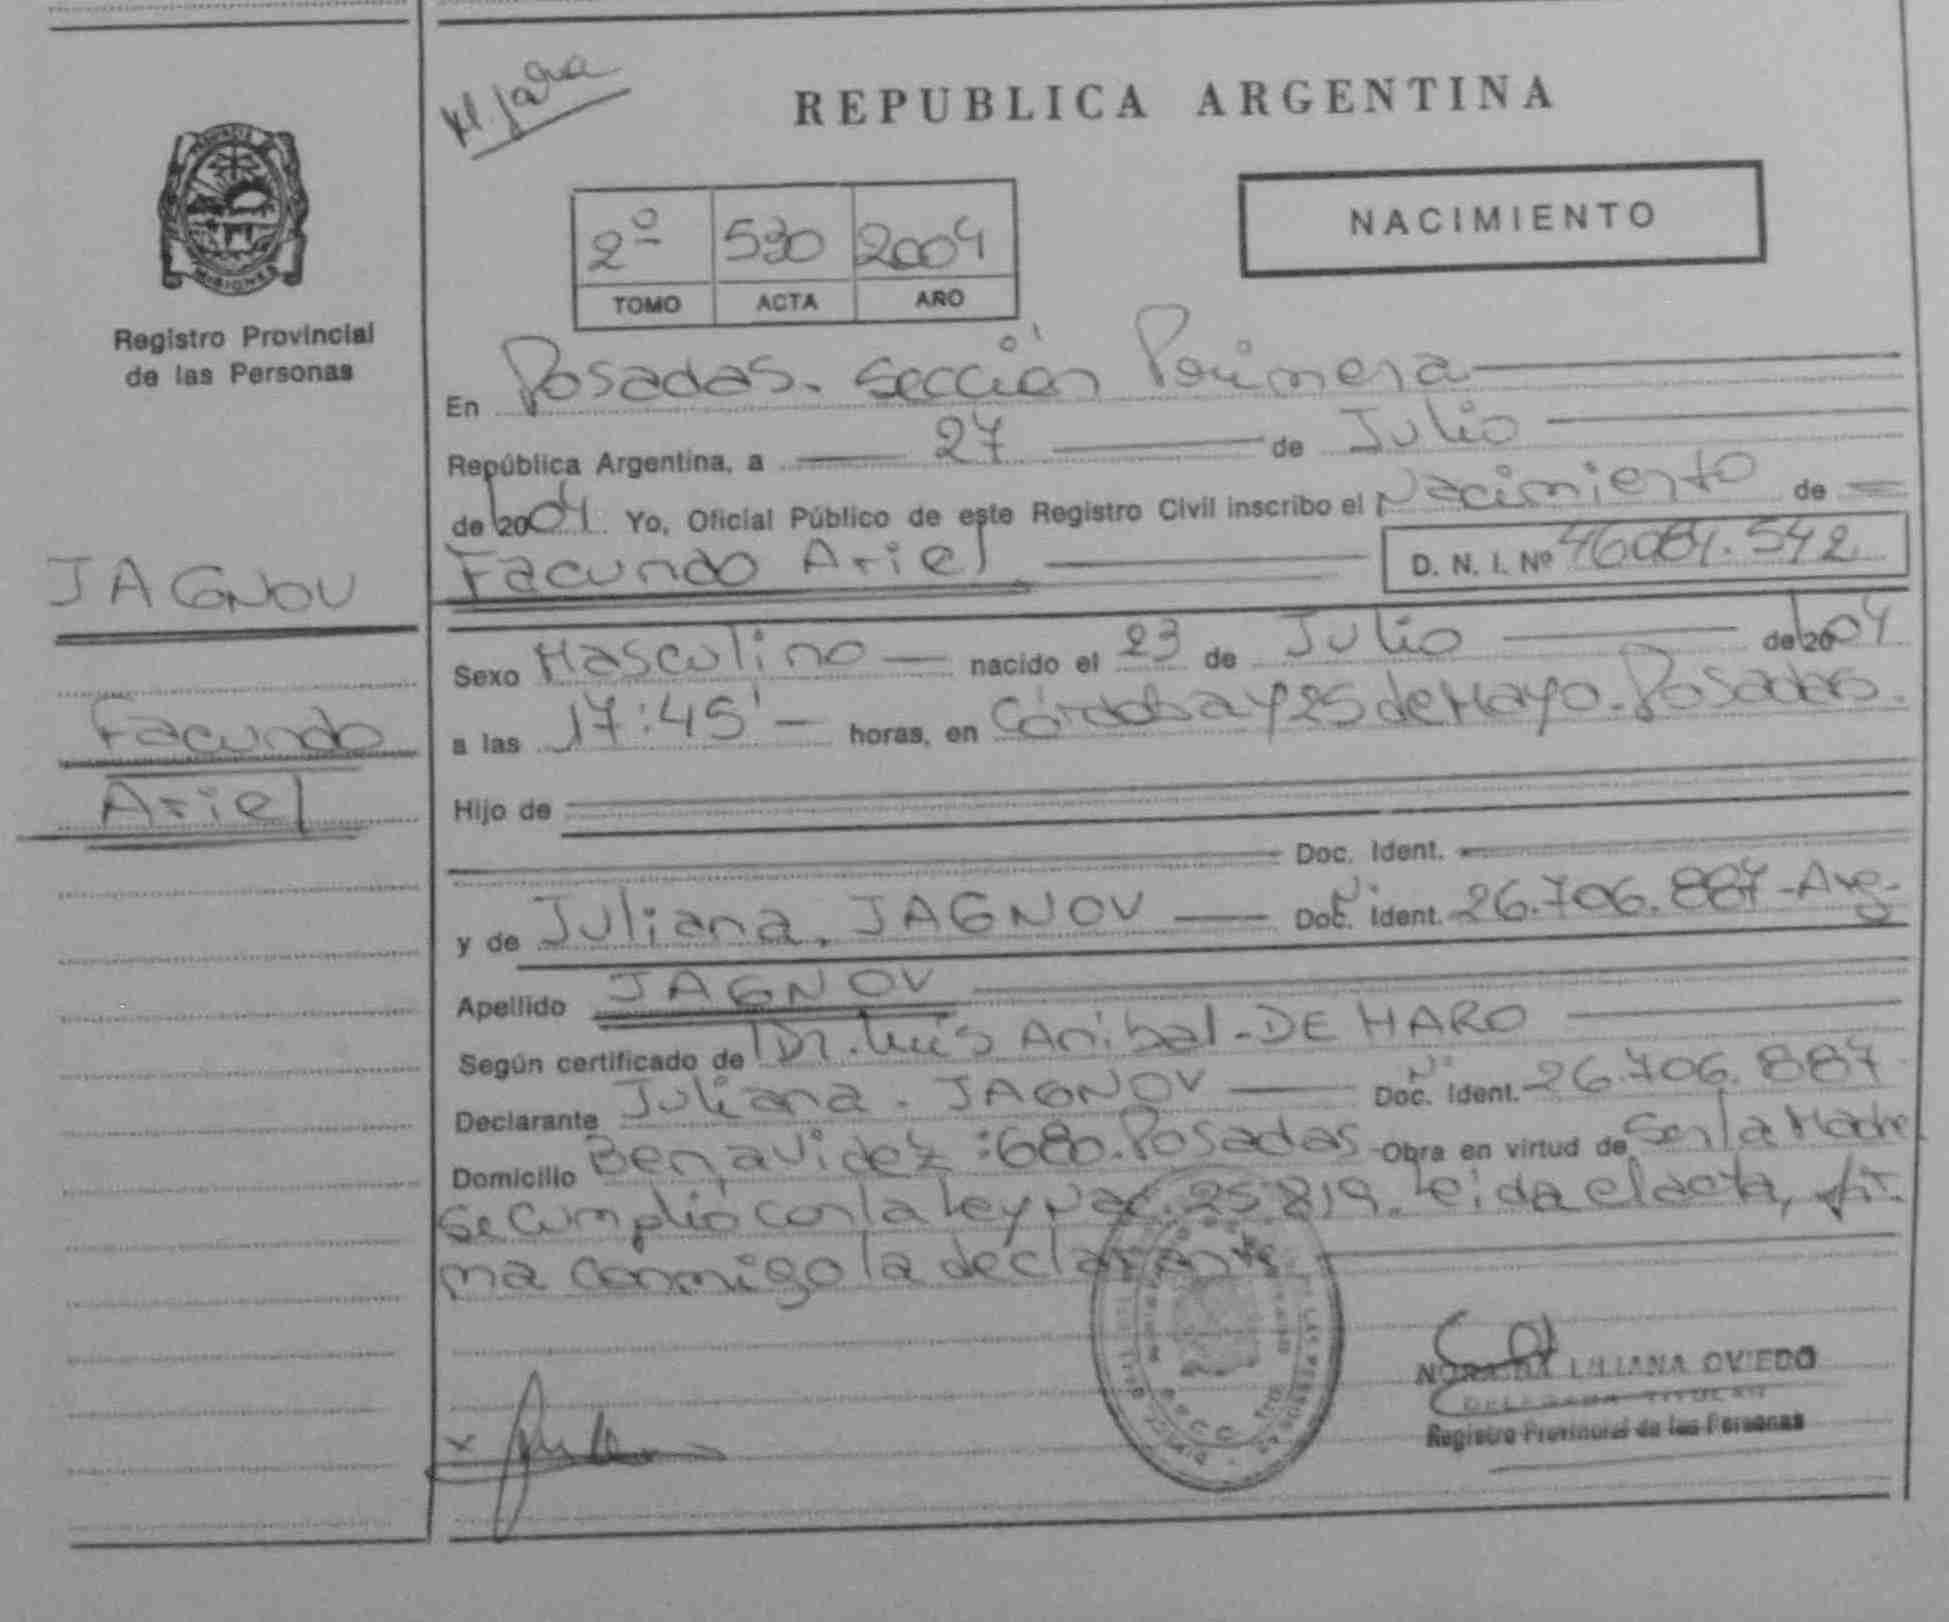 REPUBLICA ARGENTINA
NACIMIENTO
2º 530 2004
TOMO ACTA AÑO
MISIONES
Registro Provincial
de las Personas
En Posadas. Sección Primera
República Argentina, a 27 de Julio
de 2004 Yo, Oficial Público de este Registro Civil inscribo el Nacimiento de
Facundo Ariel D. N. I. Nº 46.084.542
JAGNOU
Facundo
Ariel
Sexo Masculino nacido el 23 de Julio de 2004
a las 17:45' horas, en Córdoba y 25 de Mayo. Posadas.
Hijo de
Doc. Ident.
y de Juliana. JAGNOV Doc. Ident. Nº 26.706.887-Arg-
Apellido JAGNOV
Según certificado de Dr. Luis Anibal-DE HARO
Declarante Juliana. JAGNOV Doc. Ident. Nº 26.706.887
Domicilio Benavidez :680. Posadas Obra en virtud de Ser la Madre
Se Cumplió con la Ley Nac. 25.819. Leida el acta, fir-
ma conmigo la declarante
LILIANA OVIEDO
DELEGADA TITULAR
Registro Provincial de las Personas